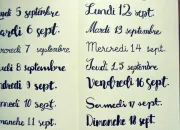 5 septembre
6 sept.
7 septembre
8 septembre
9 sept.
septembre
11 sept.
Lundi 12 sept.
Mardi 13 septembre
Mercredi 14 sept.
Jeudi 15 septembre
Vendredi 16 sept.
Samedi 17 sept.
Dimanche 18 sept.